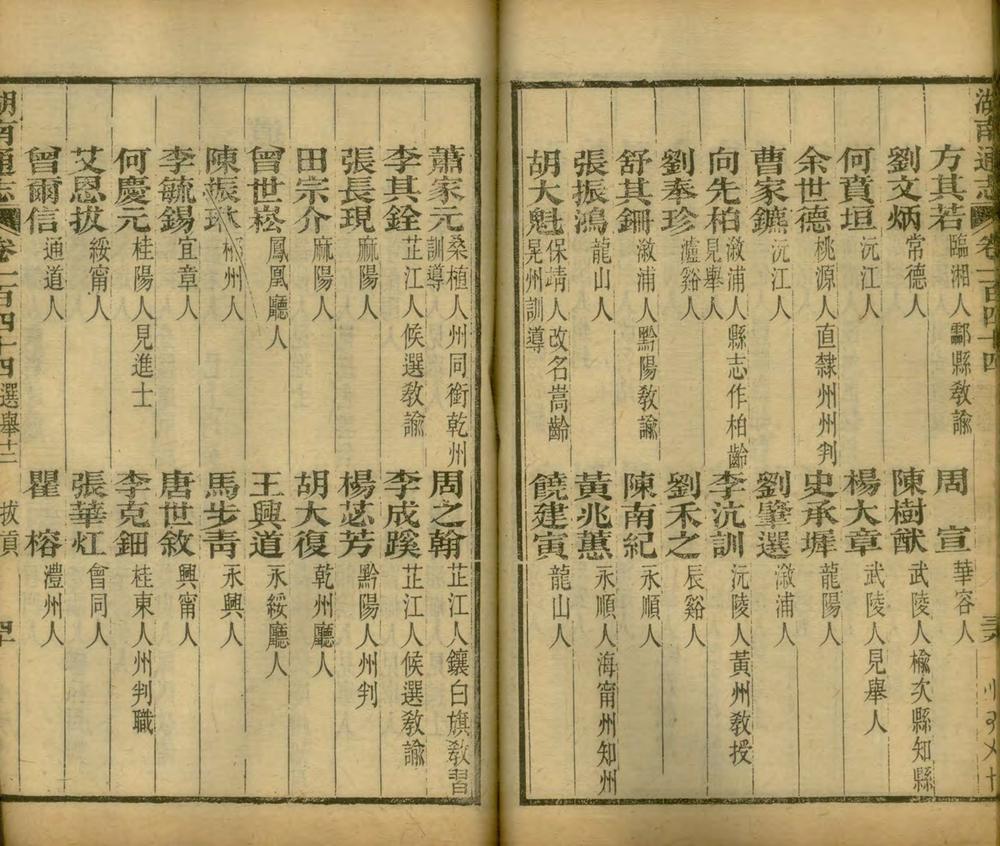 湖南通志 卷一百四十四
方其若 臨湘人酃縣教諭 周 宣 華容人
劉文炳 常德人 陳樹猷 武陵人榆次縣知縣
何賁垣 沅江人 楊大章 武陵人見舉人
余世德 桃源人直隸州州判 史承墀 龍陽人
曹家鑣 沅江人 劉肇選 漵浦人
向先柏 漵浦人縣志作柏齡見舉人 李沆訓 沅陵人黃州教授
劉奉珍 瀘谿人 劉禾之 辰谿人
舒其鈿 漵浦人黔陽教諭 陳南紀 永順人
張振鴻 龍山人 黃兆蕙 永順人海甯州知州
胡大魁 保靖人改名嵩齡晃州訓導 饒建寅 龍山人
蕭家元 桑植人州同銜乾州訓導 周之翰 芷江人鑲白旗教習
李其銓 芷江人候選教諭 李成蹊 芷江人候選教諭
張長現 麻陽人 楊苾芳 黔陽人州判
田宗介 麻陽人 胡大復 乾州廳人
曾世崧 鳳凰廳人 王興道 永綏廳人
陳振 郴州人 馬步青 永興人
李毓錫 宜章人 唐世敘 興甯人
何慶元 桂陽人見進士 李克鈿 桂東人州判職
艾恩拔 綏甯人 張華灴 會同人
曾爾信 通道人 瞿 榕 澧州人
湖南通志 卷一百四十四 選舉十二 拔貢